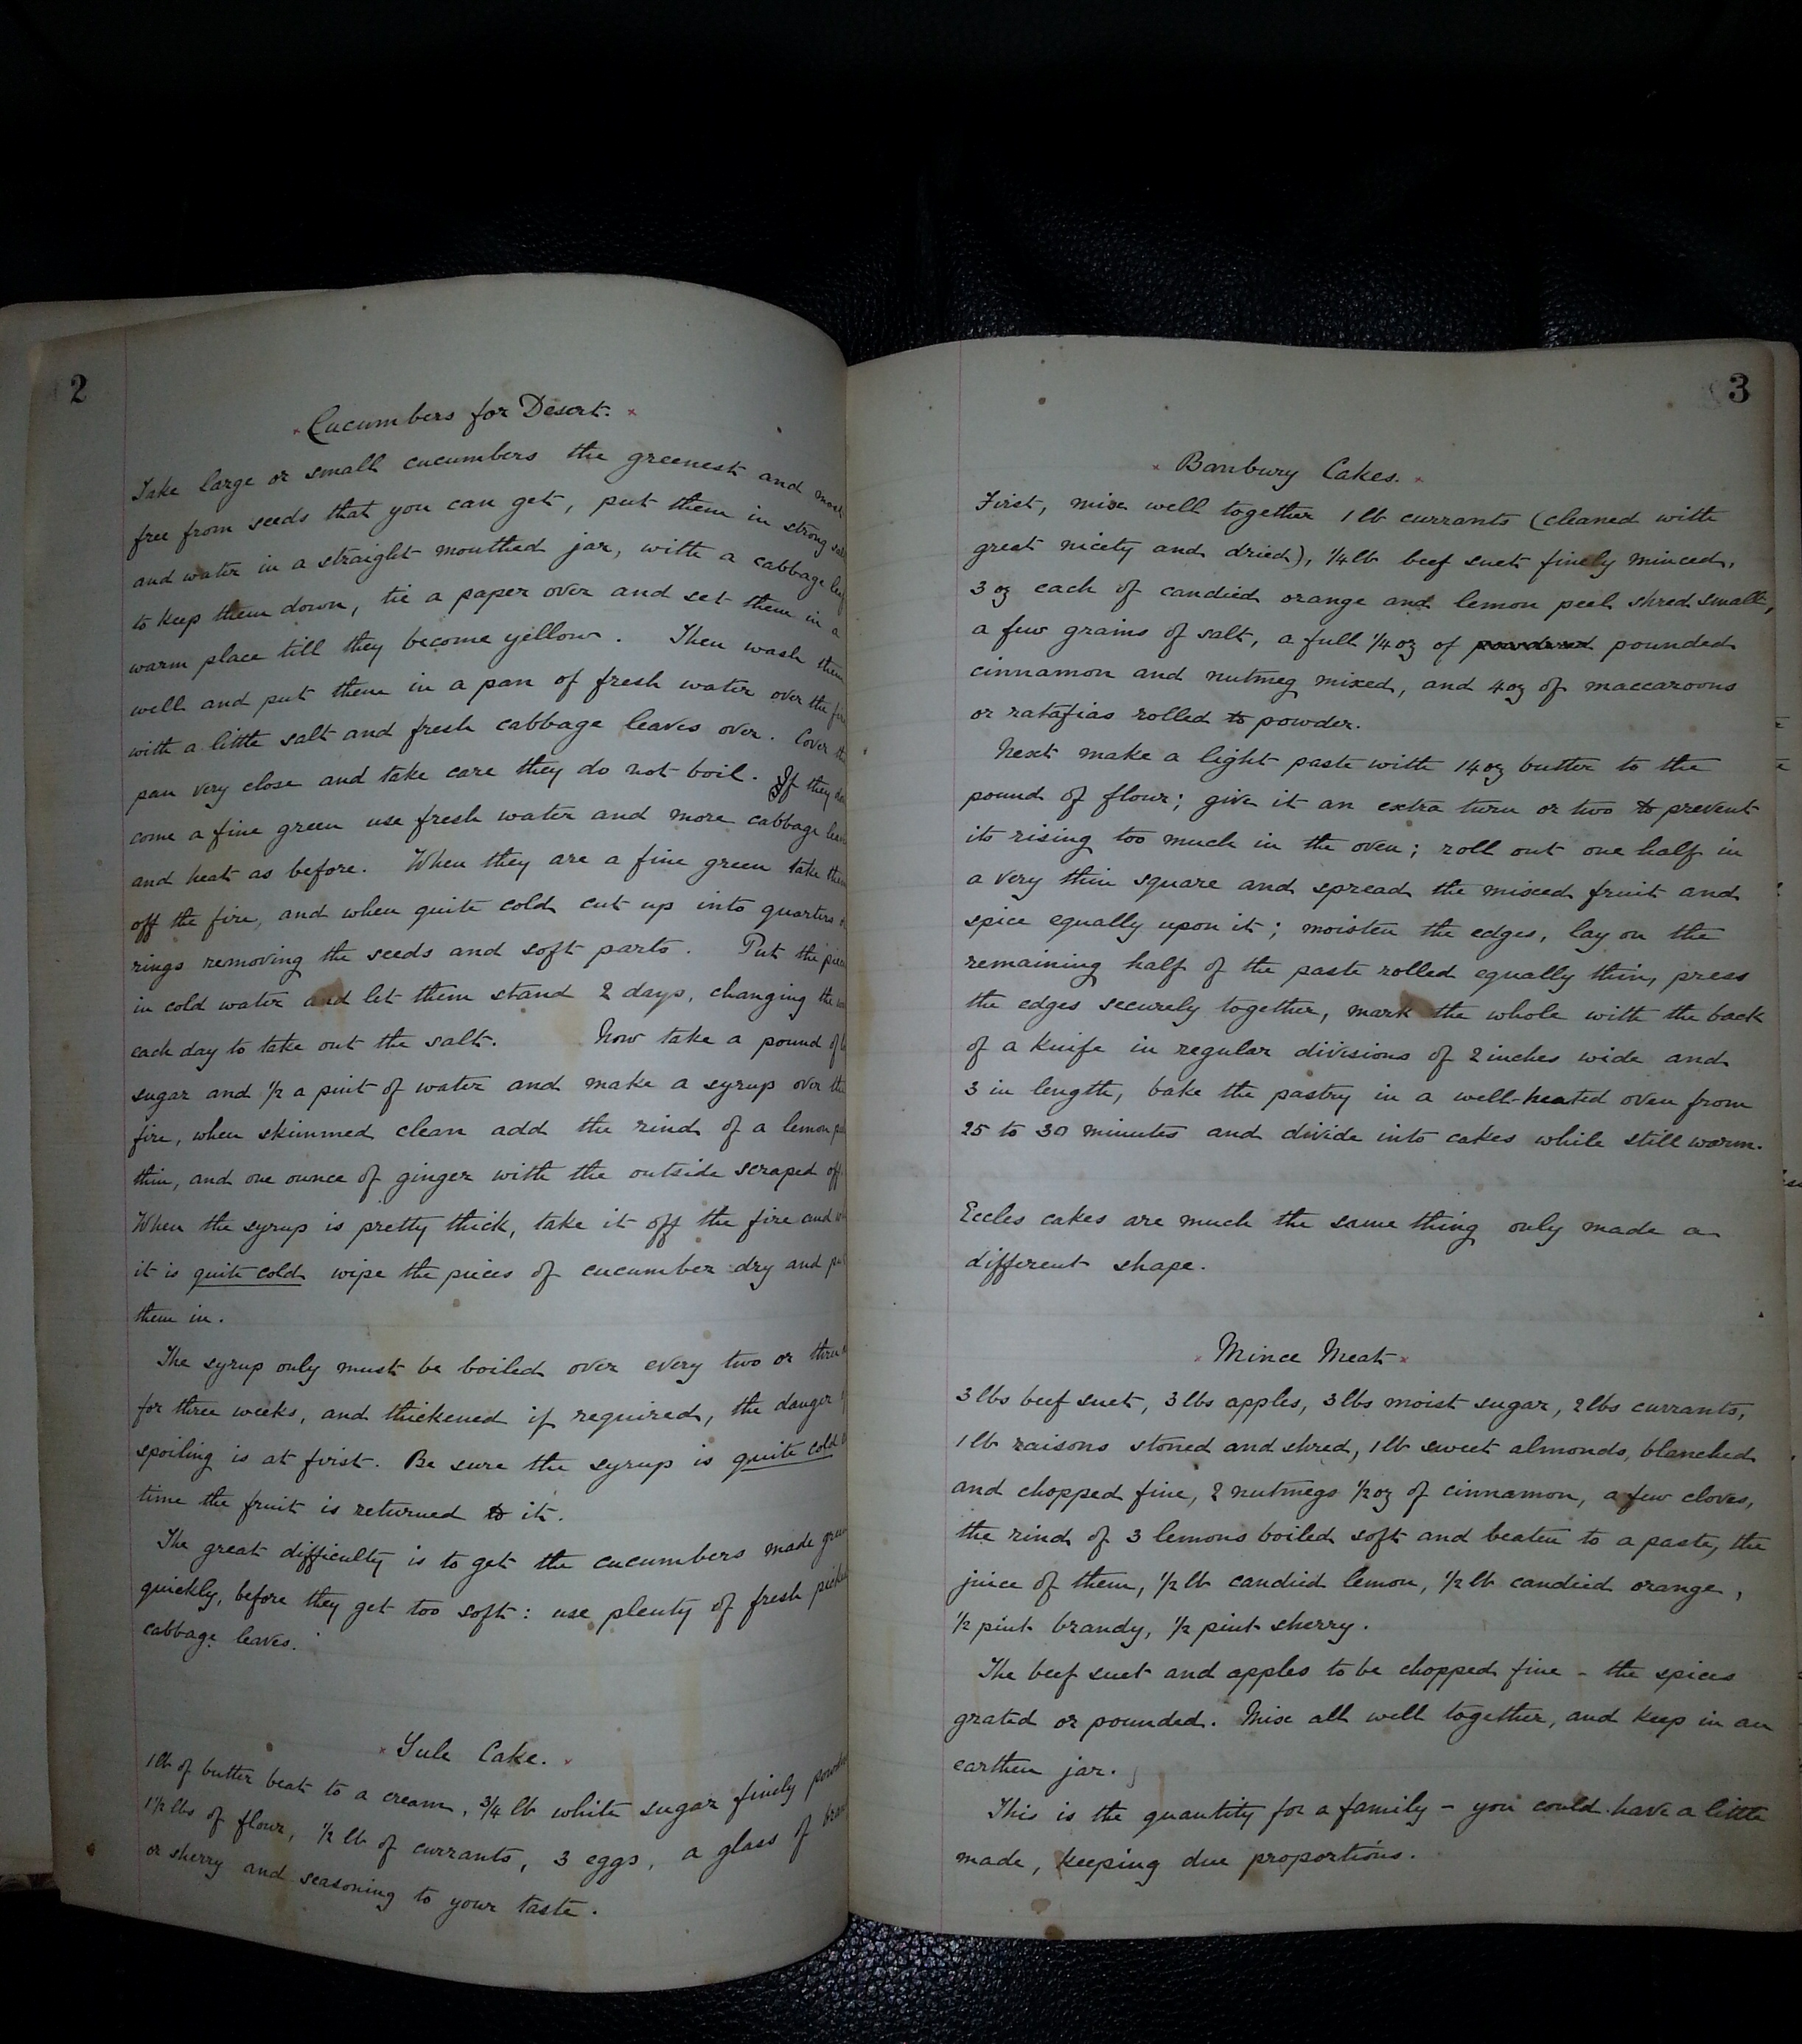 2
Cucumbers for Desert.
Take large or small cucumbers the greenest and most
free from seeds that you can get, put them in strong
and water in a straight mouthed jar, with a cabbage
to keep them down, tie a paper over and set them in a
warm place till they become yellow. Then wash them
well and put them in a pan of fresh water over the
with a little salt and fresh cabbage leaves over. Cover
pan very close and take care they do not boil. If they
come a fine green use fresh water and more cabbage
and heat as before. When they are a fine green take
off the fire, and when quite cold cut up into quarters
rings removing the seeds and soft parts. Put the
in cold water and let them stand 2 days, changing the
each day to take out the salt. Now take a pound of
sugar and 1/2 a pint of water and make a syrup over the
fire, when skimmed clean add the rind of a lemon
thin, and one ounce of ginger with the outside scraped off.
When the syrup is pretty thick, take it off the fire and
it is quite cold wipe the pieces of cucumber dry and
them in.
The syrup only must be boiled over every two or three
for three weeks, and thickened if required, the danger
spoiling is at first. Be sure the syrup is quite cold
time the fruit is returned to it.
The great difficulty is to get the cucumbers made
quickly, before they get too soft: use plenty of fresh
cabbage leaves.
Yule Cake.
1 lb of butter beat to a cream, 3/4 lb white sugar finely
1 1/2 lbs of flour, 1/2 lb of currants, 3 eggs, a glass of
or sherry and seasoning to your taste.
3
Banbury Cakes.
First, mix well together 1 lb currants (cleaned with
great nicety and dried), 1/4 lb beef suet finely minced,
3 oz each of candied orange and lemon peel shred small,
a few grains of salt, a full 1/4 oz of pounded
cinnamon and nutmeg mixed, and 4 oz of maccaroons
or ratafias rolled to powder.
Next make a light paste with 14 oz butter to the
pound of flour; give it an extra turn or two to prevent
its rising too much in the oven; roll out one half in
a very thin square and spread the mixed fruit and
spice equally upon it; moisten the edges, lay on the
remaining half of the paste rolled equally thin, press
the edges securely together, mark the whole with the back
of a knife in regular divisions of 2 inches wide and
3 in length, bake the pastry in a well-heated oven from
25 to 30 minutes and divide into cakes while still warm.
Eccles cakes are much the same thing only made a
different shape.
Mince Meat
3 lbs beef suet, 3 lbs apples, 3 lbs moist sugar, 2 lbs currants,
1 lb raisons stoned and shred, 1 lb sweet almonds, blanched
and chopped fine, 2 nutmegs 1/2 oz of cinnamon, a few cloves,
the rind of 3 lemons boiled soft and beaten to a paste, the
juice of them, 1/2 lb candied lemon, 1/2 lb candied orange,
1/2 pint brandy, 1/2 pint sherry.
The beef suet and apples to be chopped fine - the spices
grated or pounded. Mix all well together, and keep in an
earthen jar.
This is the quantity for a family - you could have a little
made, keeping due proportions.